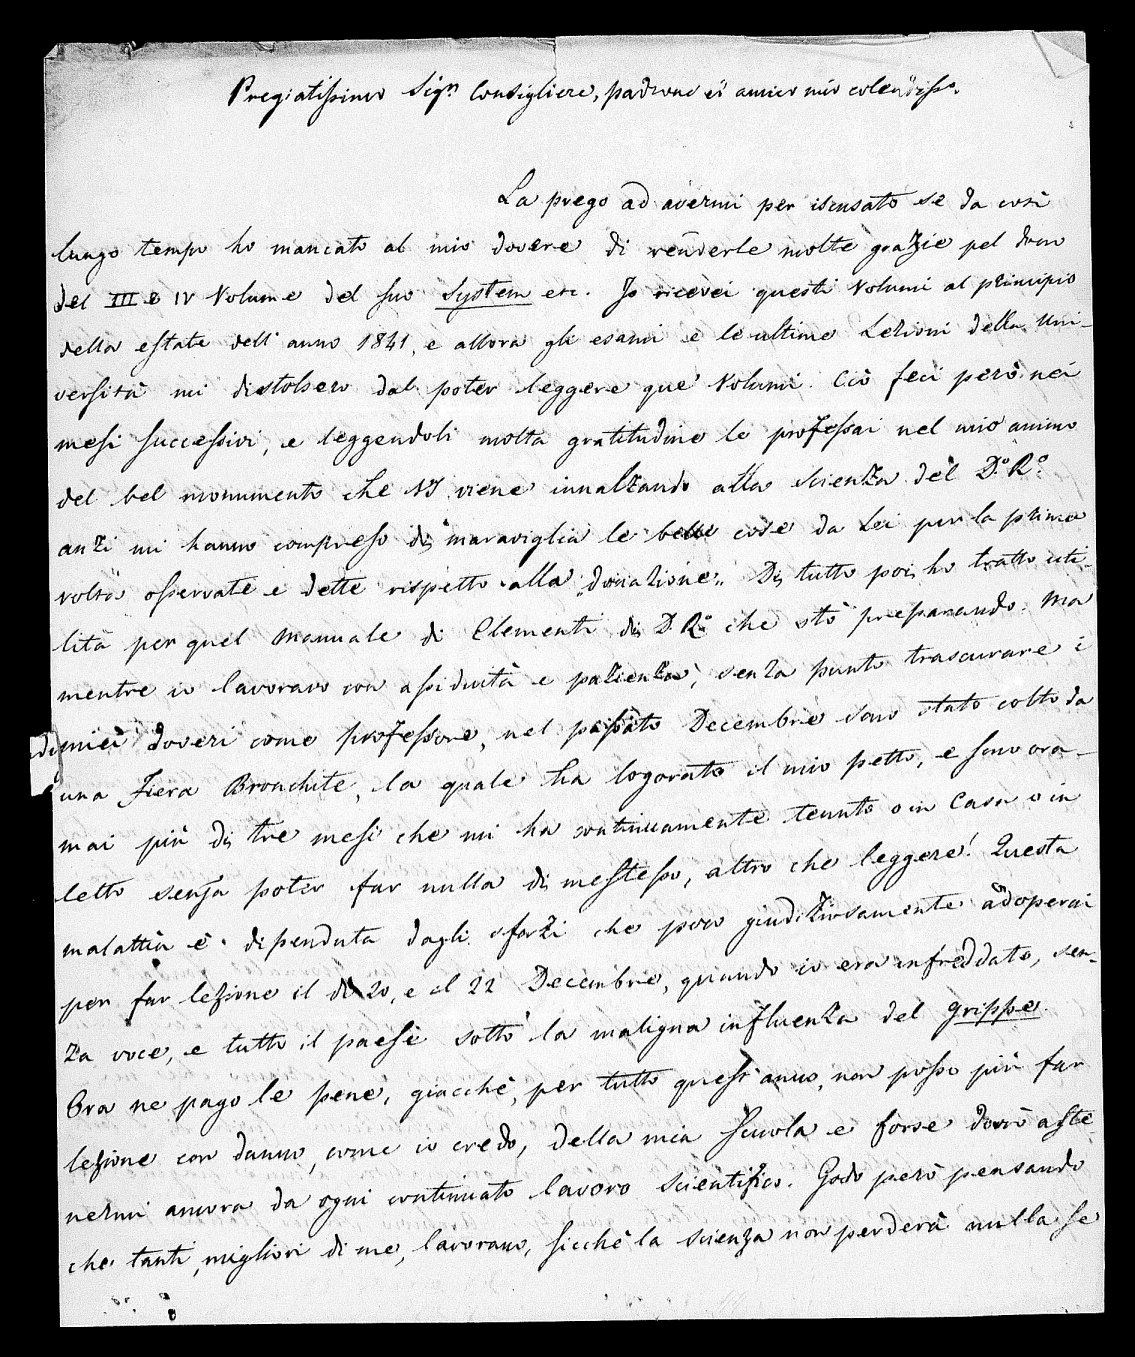 Pregiatissimo Sigr Consigliere, padrone ed amico mio colendisso.
La prego ad avermi per iscusato se da così
lungo tempo ho mancato al mio dovere di renderle molte grazie pel dono
del III e IV Volume del suo System etc. Io ricevei questi Volumi al principio
della estate dell'anno 1841, e allora gli esami e le ultime Lezioni della Uni-
versità mi distolsero dal poter leggere que' Volumi. Ciò feci però nei
mesi successivi, e leggendoli molta gratitudine le professai nel mio animo
del bel monumento che viene innalzando alla scienza del D.o R.o
anzi mi hanno compreso di maraviglia le belle cose da Lei per la prima
volta osservate e dette rispetto alla „donazione„. Di tutto poi ho tratto uti-
lità per quel Manuale di Elementi di D. R.o che stò preparando. Ma
mentre io lavoravo con assiduità e pazienza, senza punto trascurare i
miei doveri come professore, nel passato Decembre sono stato colto da
una fiera Bronchite, la quale ha logorato il mio petto, e sono ora-
mai più di tre mesi che mi ha continuamente tenuto o in Casa o in
letto senza poter far nulla di me stesso, altro che leggere! Questa
malattia è dipenduta dagli sforzi che poco giudiziosamente adoperai
per far lezione il dì 20, e il 22 Decembre, quando io era infreddato, sen-
za voce, e tutto il paese sotto la maligna influenza del grippe.
Ora ne pago le pene, giacchè, per tutto quest'anno, non posso più far
lezione con danno, come io credo, della mia Scuola e forse dovrò aste
nermi ancora da ogni continuato lavoro scientifico. Godo però pensando
che tanti, migliori di me, lavorano, sicchè la scienza non perderà nulla se